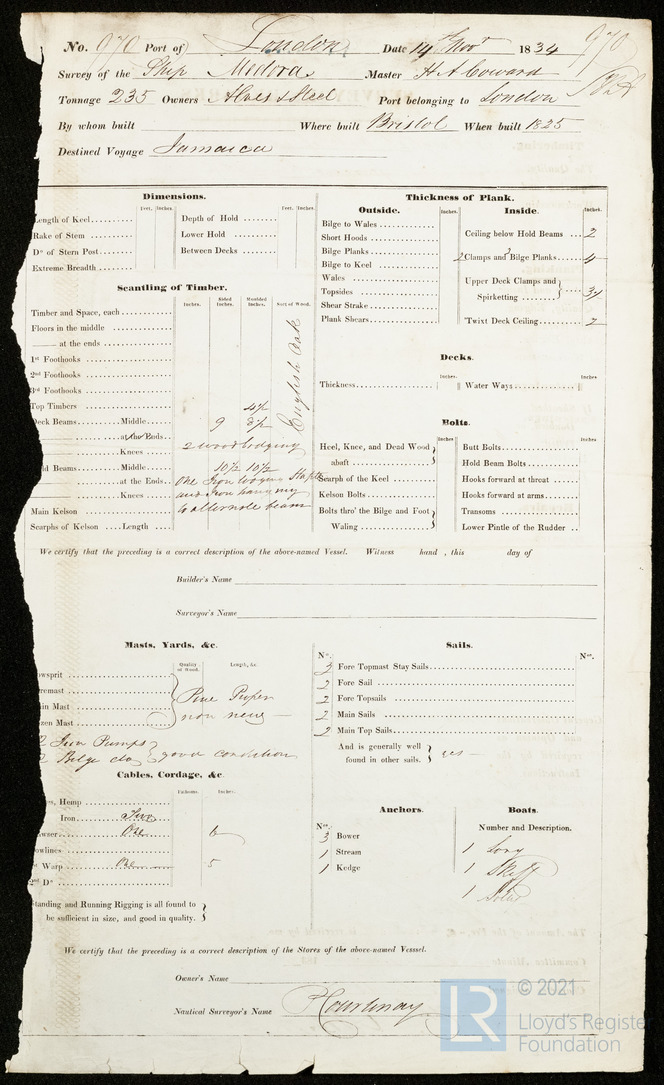 No. 970 Port of London Date 14th Novr 1834 970
Survey of the Ship Medora Master H A Coward
Tonnage 235 Owners Alves & Steel Port belonging to London
By whom built Where built Bristol When built 1825
Destined Voyage Jamaica
Dimensions.
Feet. Inches. Feet. Inches.
Length of Keel
Rake of Stem
Do of Stern Post
Extreme Breadth
Depth of Hold
Lower Hold
Between Decks
Scantling of Timber.
Inches. Sided Inches. Moulded Inches. Sort of Wood.
Timber and Space, each
Floors in the middle
at the ends
1st Foothooks
2nd Foothooks
3rd Foothooks
Top Timbers 4½
English Oak
Deck Beams Middle 9
at the Ends
Knees 2 wood lodging
ld Beams Middle 10½ 10½
at the Ends one Iron
Knees and Iron hanging
Main Kelson to alternate beams
Scarphs of Kelson Length
Thickness of Plank.
Outside. Inches.
Bilge to Wales
Short Hoods
Bilge Planks
Bilge to Keel
Wales
Topsides
Shear Strake
Plank Shears
Inside. Inches.
Ceiling below Hold Beams 2
2 Clamps and 3 Bilge Planks 4
Upper Deck Clamps and
Spirketting
Twixt Deck Ceiling 2
Decks.
Inches. Inches.
Thickness Water Ways
Bolts.
Inches. Inches.
Heel, Knee, and Dead Wood
abaft
Scarph of the Keel
Kelson Bolts
Bolts thro' the Bilge and Foot
Waling
Butt Bolts
Hold Beam Bolts
Hooks forward at throat
Hooks forward at arms
Transoms
Lower Pintle of the Rudder
We certify that the preceding is a correct description of the above-named Vessel. Witness hand , this day of
Builder's Name
Surveyor's Name
Masts, Yards, &c.
Quality of Wood. Length, &c.
owsprit
remast Pine Proper
in Mast
zen Mast non new
2 Iron Pumps
2 Bilge do good condition
Cables, Cordage, &c.
Fathoms. Inches.
es, Hemp
Iron Two
awser One 6
owlines
Warp One 5
2nd Do
Standing and Running Rigging is all found to
be sufficient in size, and good in quality.
Sails.
No. No.
3 Fore Topmast Stay Sails
2 Fore Sail
2 Fore Topsails
2 Main Sails
2 Main Top Sails
And is generally well
found in other sails. yes
Anchors.
No.
3 Bower
1 Stream
1 Kedge
Boats.
Number and Description.
1 Long
1 Skiff
1
We certify that the preceding is a correct description of the Stores of the above-named Vesssel.
Owner's Name
Nautical Surveyor's Name Courtenay
LR © 2021
Lloyd's Register
Foundation